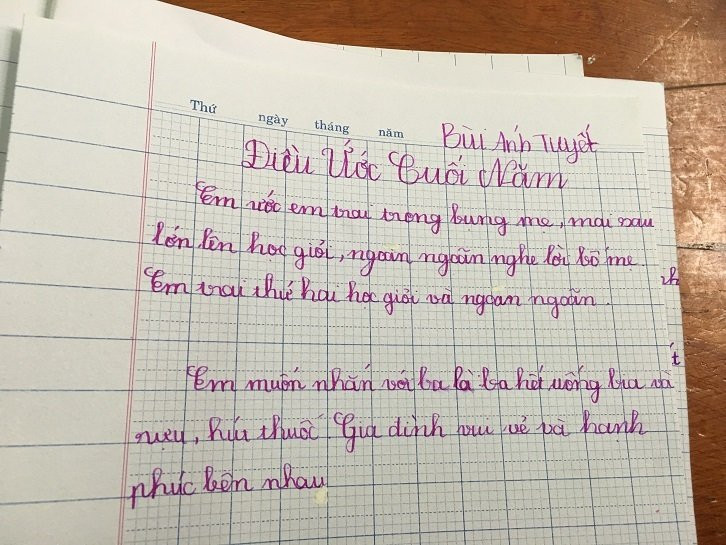 Thứ ngày tháng năm
Bùi Anh Tuyết
Điều Ước Cuối Năm
Em ước em trai trong bụng mẹ, mai sau
lớn lên học giỏi, ngoan ngoãn nghe lời bố mẹ.
Em trai thứ hai học giỏi và ngoan ngoãn.
Em muốn nhắn với ba là ba hết uống bia và
rượu, hút thuốc. Gia đình vui vẻ và hạnh
phúc bên nhau